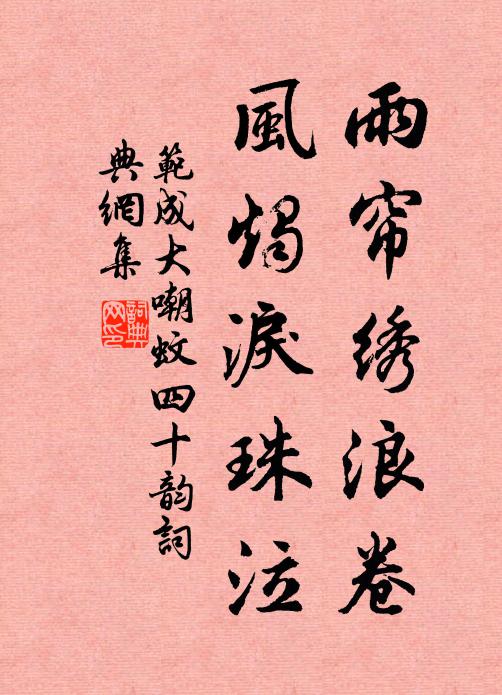 雨帘绣浪卷
風燭淚珠泣
範成大嘲蚊四十韵詞
典網集
詞典
网印